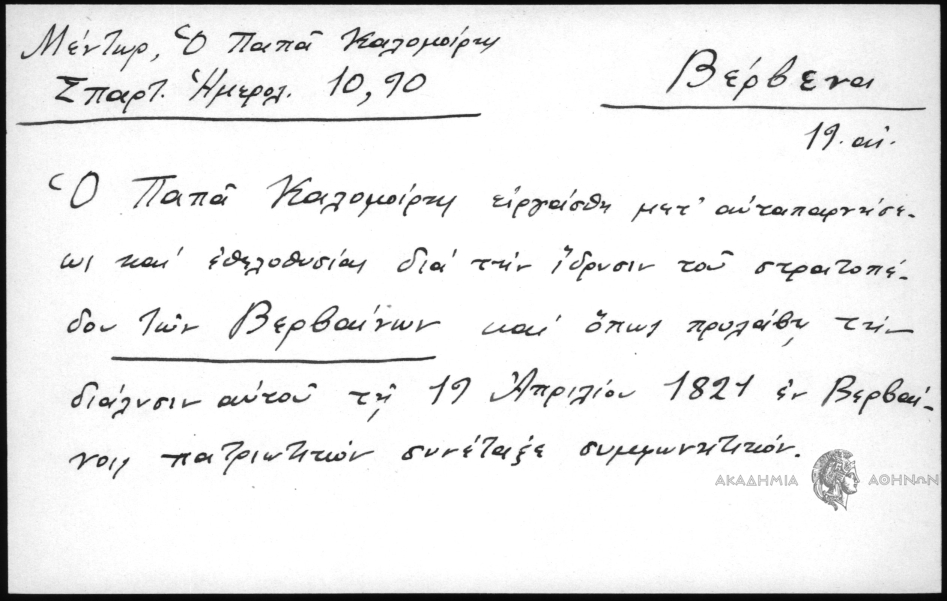 Μέντωρ, Ὁ Παπᾶ Καλομοίρης
Σπαρτ. Ἡμερολ. 10, 90
Βέρβενα
19. αἰ.
Ὁ Παπᾶ Καλομοίρης εἰργάσθη μετ' αὐταπαρνήσε-
ως καί ἐθελοθυσίας διά τήν ἵδρυσιν τοῦ στρατοπέ-
δου τῶν Βερβαίνων καί ὅπως προλάβῃ τήν
διάλυσιν αὐτοῦ τῇ 19 Ἀπριλίου 1821 ἐν Βερβαί-
νοις πατριωτικόν συνέταξε συμφωνητικόν.
ΑΚΑΔΗΜΙΑ ΑΘΗΝΩΝ